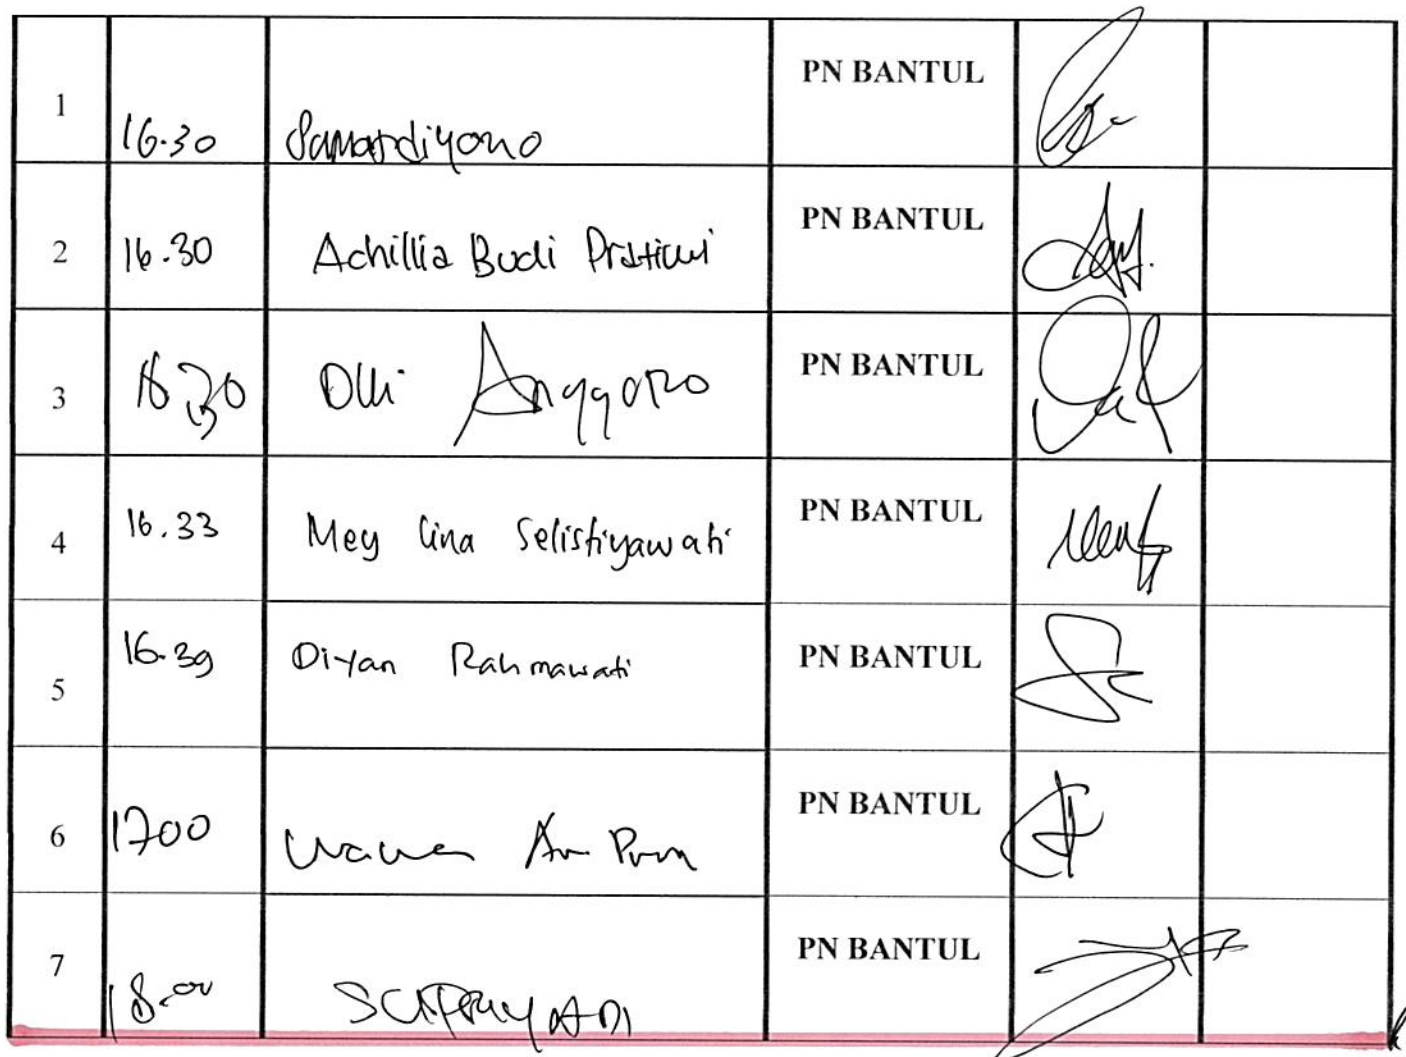 1 16.30 Samardiyono PN BANTUL
2 16.30 Achillia Budi Pratiwi PN BANTUL
3 16.30 Olli Anggoro PN BANTUL
4 16.33 Mey Lina Selistiyawati PN BANTUL
5 16.39 Diyan Rahmawati PN BANTUL
6 1700 PN BANTUL
7 18.00 SUPRIYADI PN BANTUL